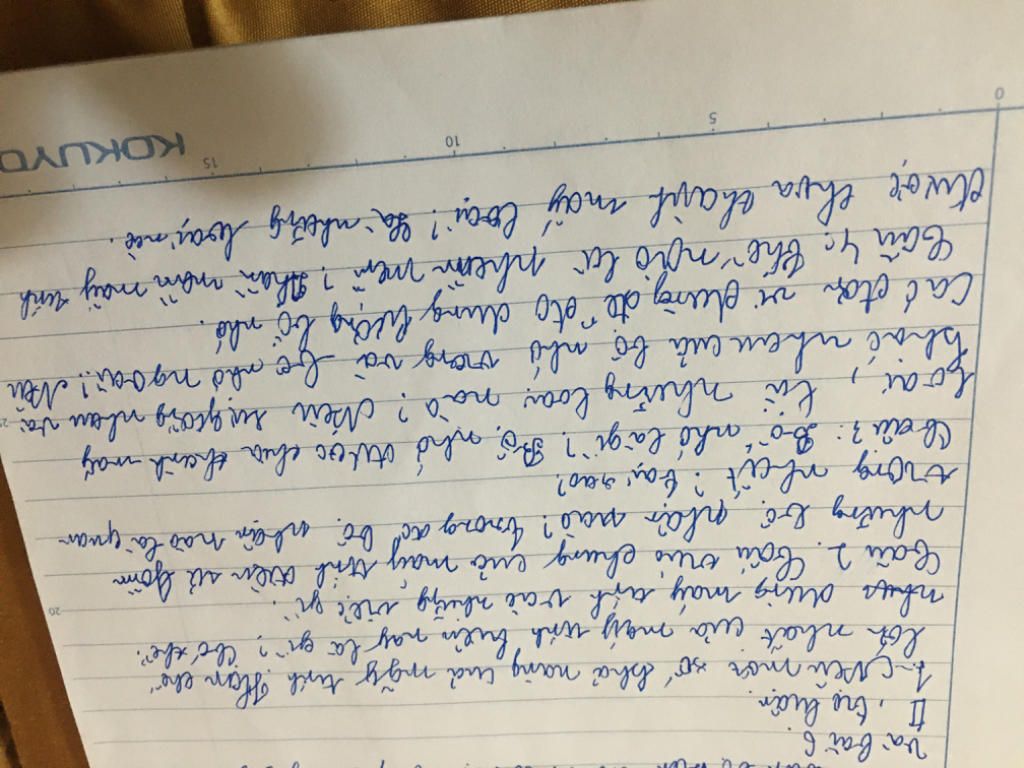 và bài 6.
II, tự luận
1- Nêu một số khả năng của máy tính. Hạn chế
lớn nhất của máy tính hiện nay là gì? Có thể
dùng máy tính vào những việc gì?
Câu 2. Cấu trúc chung của máy tính điện tử gồm
những bộ phận nào? trong các bộ phận nào là quan
trọng nhất? tại sao?
Câu 3: Bộ nhớ là gì? Bộ nhớ được chia thành mấy
loại, là những loại nào? Nêu sự giống nhau và
khác nhau của bộ nhớ trong và bộ nhớ ngoài? Nêu
Các đơn vị dùng để đo dung lượng bộ nhớ.
Câu 4: thế nào là phần mềm? Phần mềm máy tính
được chia thành mấy loại? Là những loại nào.
20
25
KOKUYO 15 10 5 0